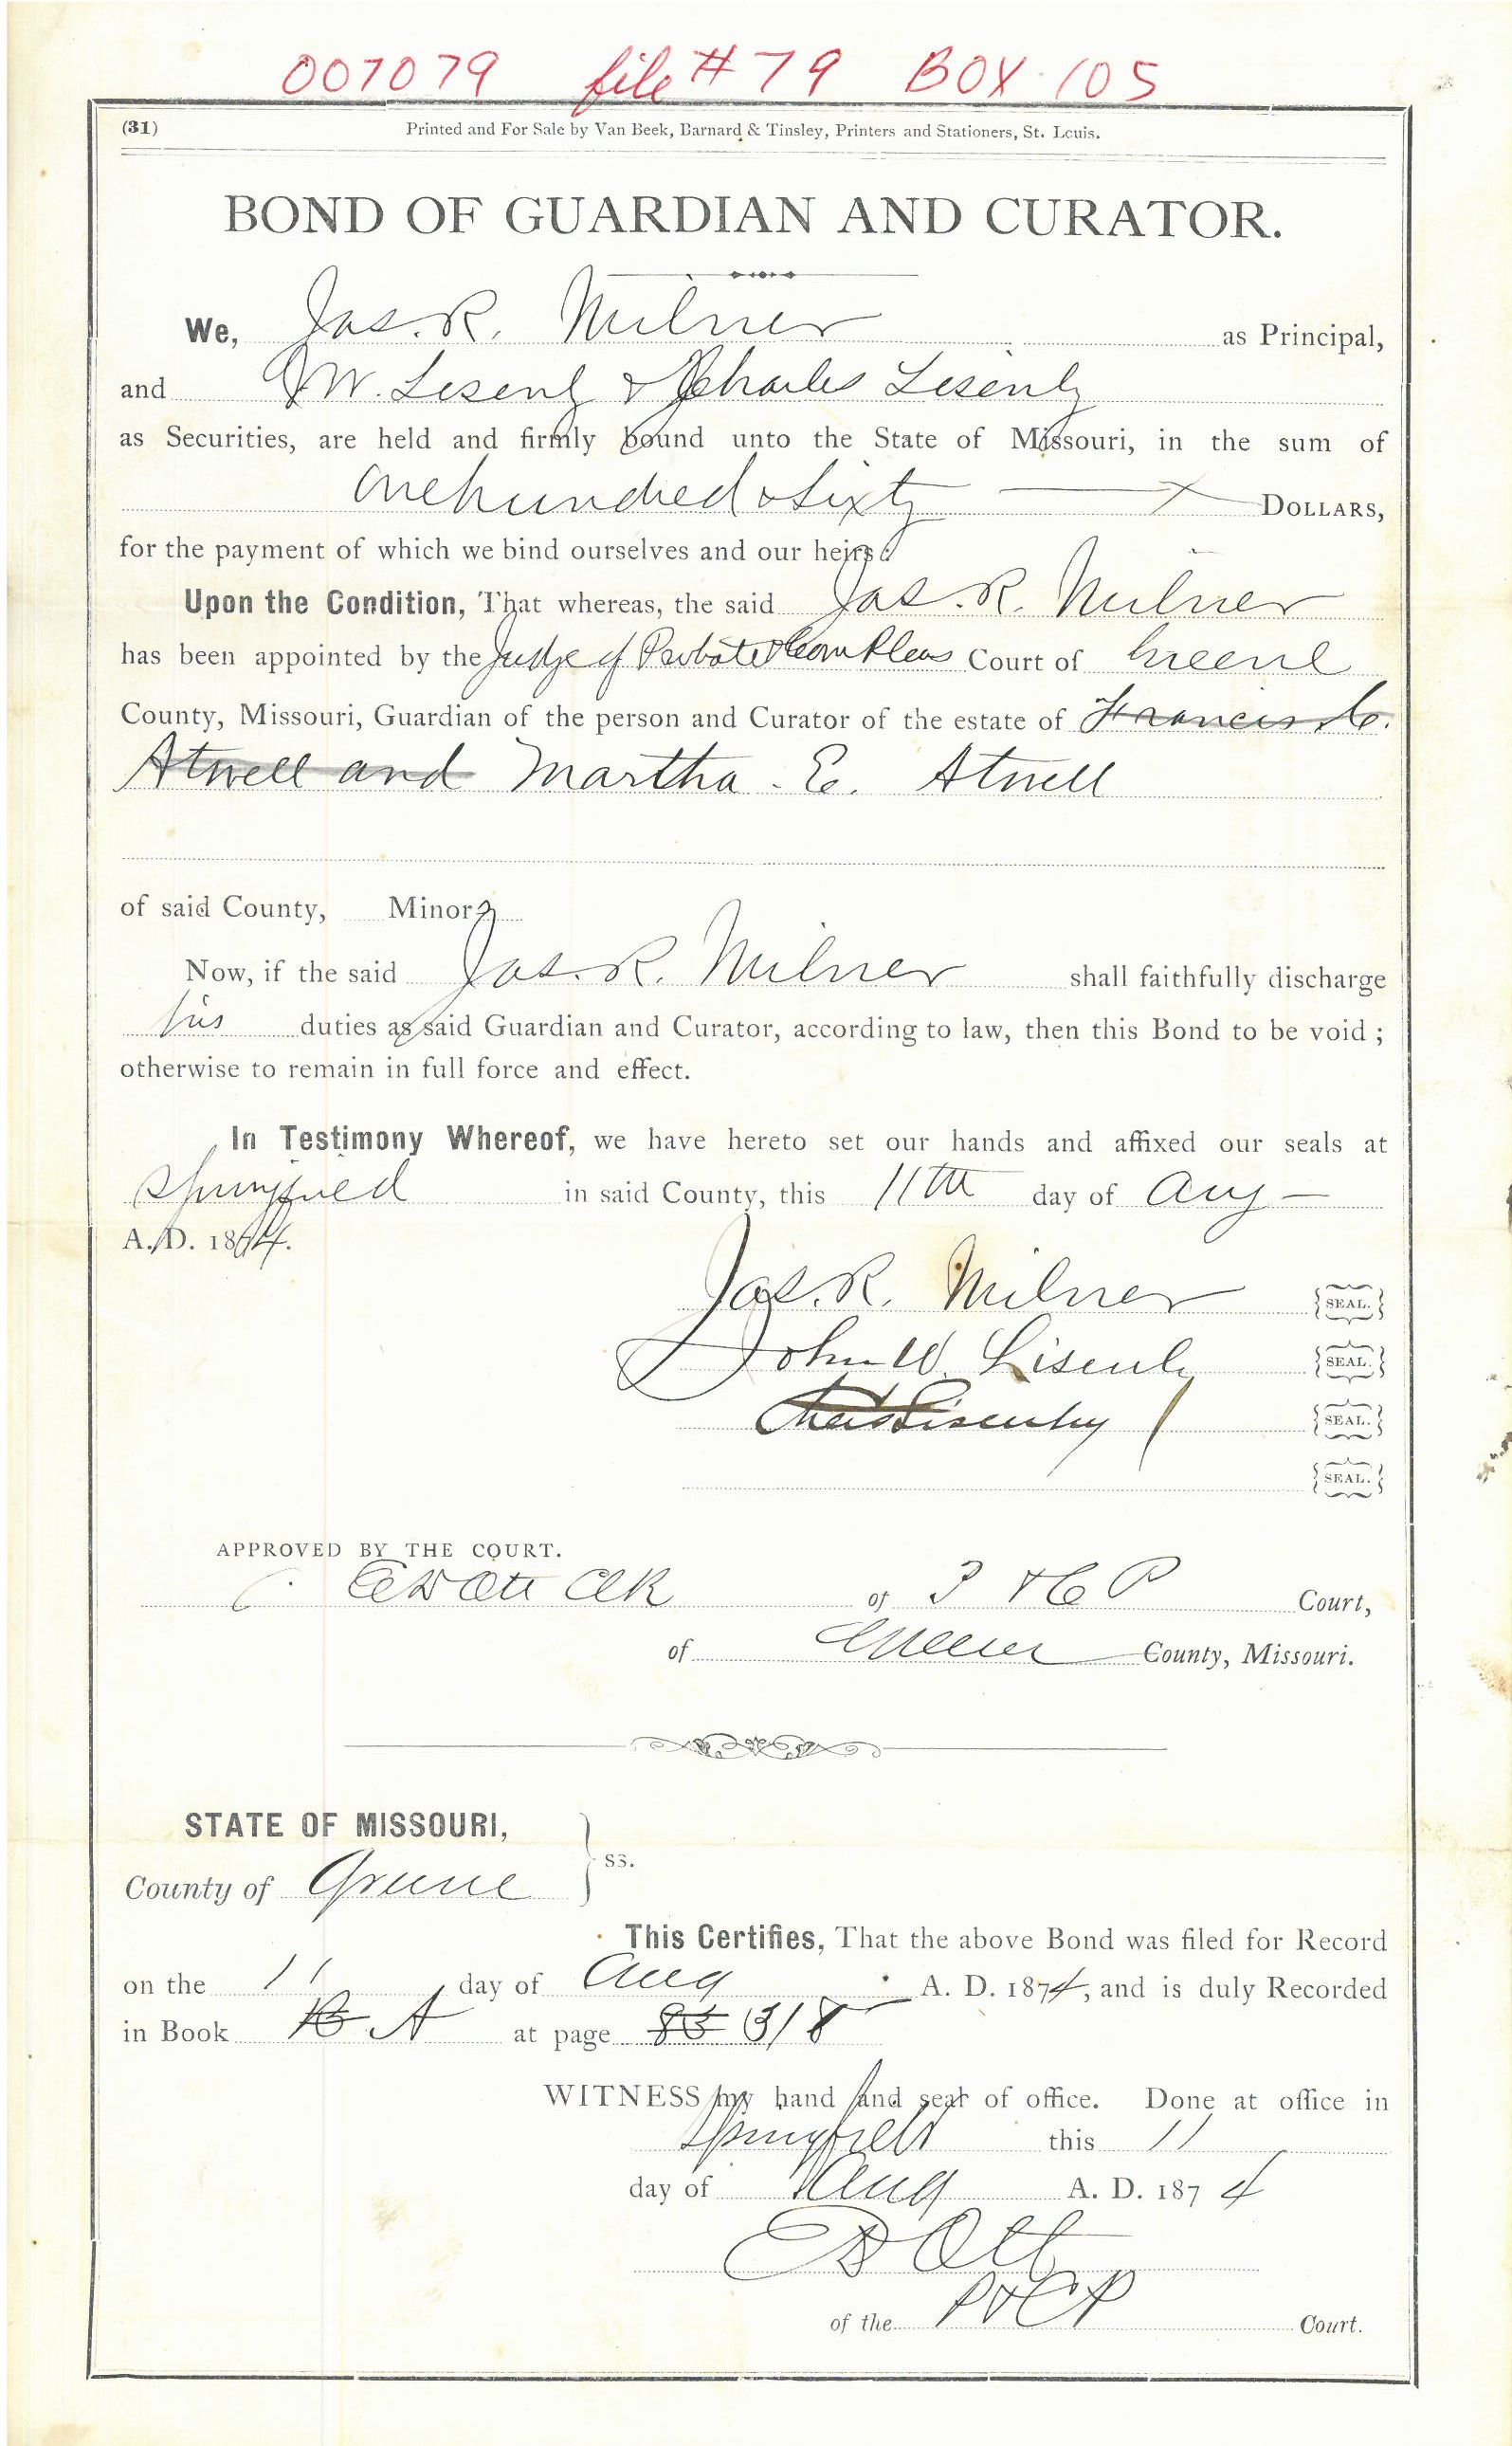 007079 file # 79 BOX 105
(31) Printed and For Sale by Van Beek, Barnard & Tinsley, Printers and Stationers, St. Louis.
BOND OF GUARDIAN AND CURATOR.
We, Jas. R. Milner as Principal,
and J W. Lisenby & Charles Lisenby
as Securities, are held and firmly bound unto the State of Missouri, in the sum of
One hundred & Sixty DOLLARS,
for the payment of which we bind ourselves and our heirs:
Upon the Condition, That whereas, the said Jas. R. Milner
has been appointed by the Judge of Probate & Com Pleas Court of Greene
County, Missouri, Guardian of the person and Curator of the estate of Francis C.
Atwell and Martha. E. Atwell
of said County, Minor
Now, if the said Jas. R. Milner shall faithfully discharge
his duties as said Guardian and Curator, according to law, then this Bond to be void ;
otherwise to remain in full force and effect.
In Testimony Whereof, we have hereto set our hands and affixed our seals at
Springfield in said County, this 11th day of Aug
A. D. 1874.
Jas. R. Milner SEAL.
John W. Lisenby SEAL.
Chas Lisenby SEAL.
SEAL.
APPROVED BY THE COURT.
E D Ott Clk of P & C P Court,
of Greene County, Missouri.
STATE OF MISSOURI,
ss.
County of Greene
This Certifies, That the above Bond was filed for Record
on the 11 day of Aug A. D. 1874, and is duly Recorded
in Book B A at page 83 318
WITNESS my hand and seal of office. Done at office in
Springfield this 11
day of Aug A. D. 1874
E D Ott
of the P & C P Court.